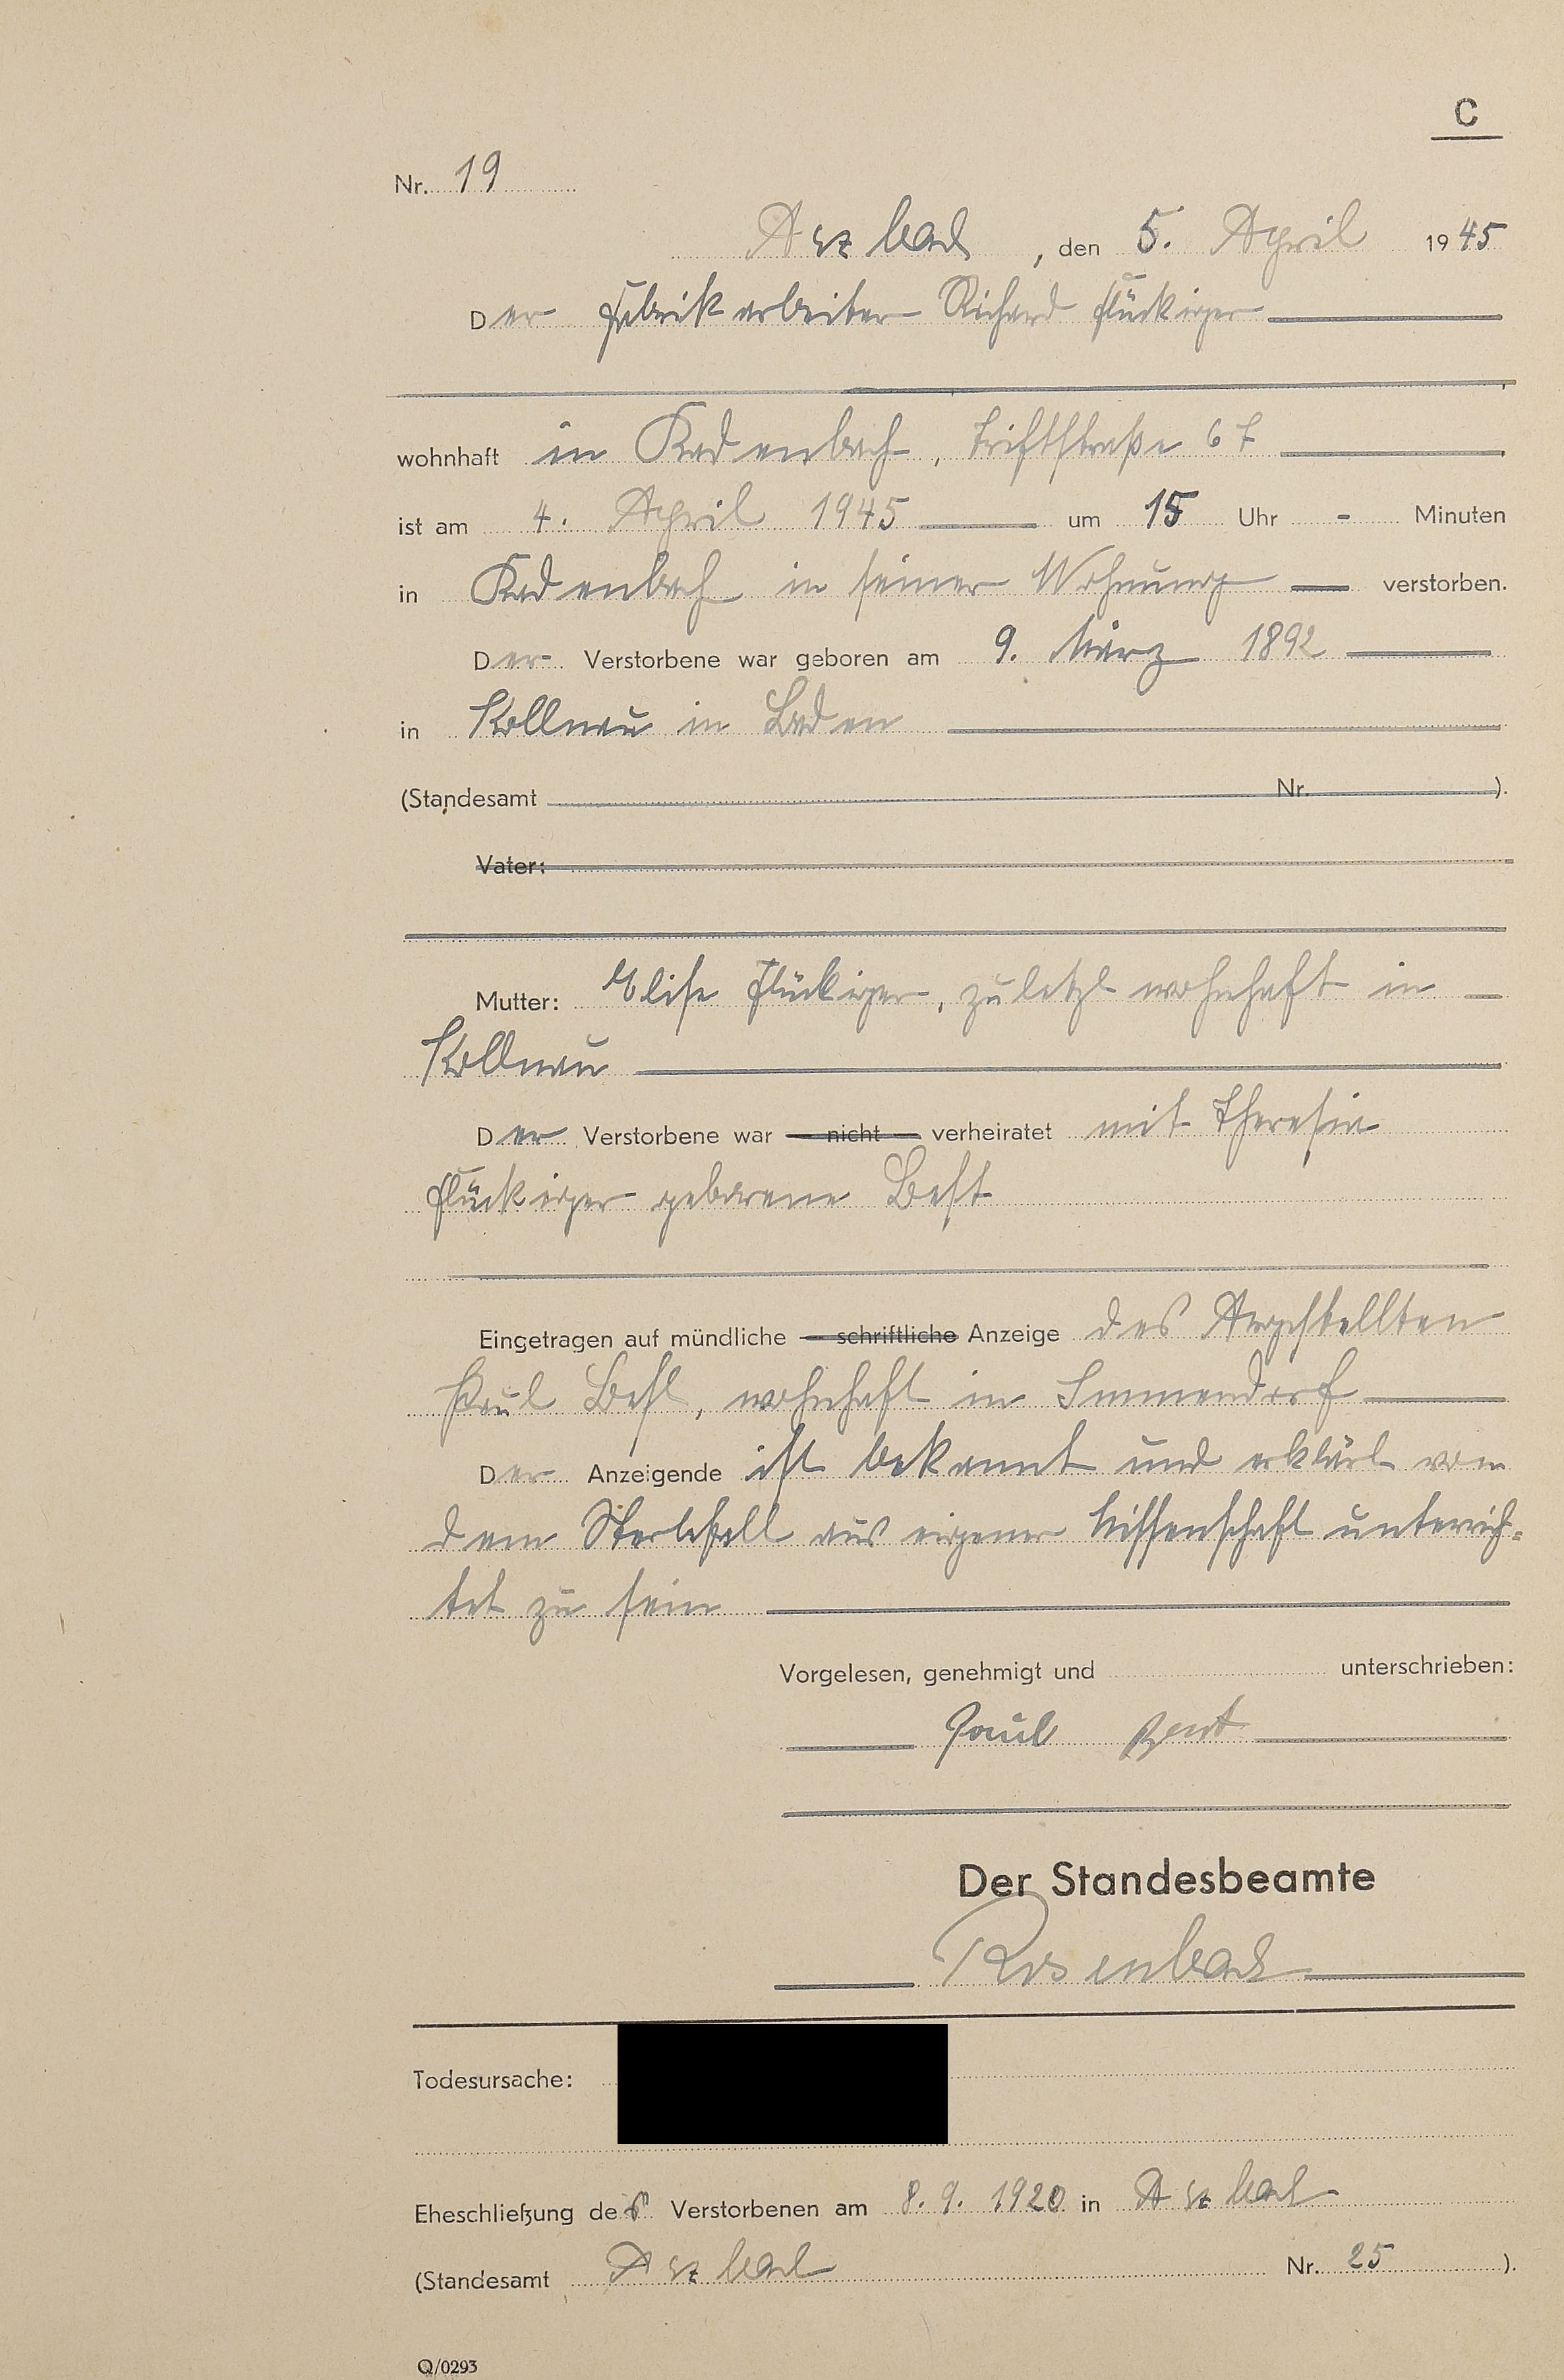 C
Nr. 19
Arzbach, den 5. April 1945
Der Fabrikarbeiter Richard Flückiger
wohnhaft in Kadenbach, Triftstraße 67
ist am 4. April 1945 um 15 Uhr - Minuten
in Kadenbach in seiner Wohnung verstorben.
Der Verstorbene war geboren am 9. März 1892
in Kollnau in Baden
(Standesamt Nr. ).
Vater:
Mutter: Elise Flückiger, zuletzt wohnhaft in
Kollnau
Der Verstorbene war nicht verheiratet mit Theresia
Flückiger geborene Best
Eingetragen auf mündliche schriftliche Anzeige des Angestellten
Paul Best, wohnhaft in Immendorf
Der Anzeigende ist bekannt und erklärt von
dem Sterbefall aus eigener Wissenschaft unterrich=
tet zu sein
Vorgelesen, genehmigt und unterschrieben:
Paul Best
Der Standesbeamte
Rosenbach
Todesursache:
Eheschließung des Verstorbenen am 8.9.1920 in Arzbach
(Standesamt Arzbach Nr. 25 ).
Q/0293